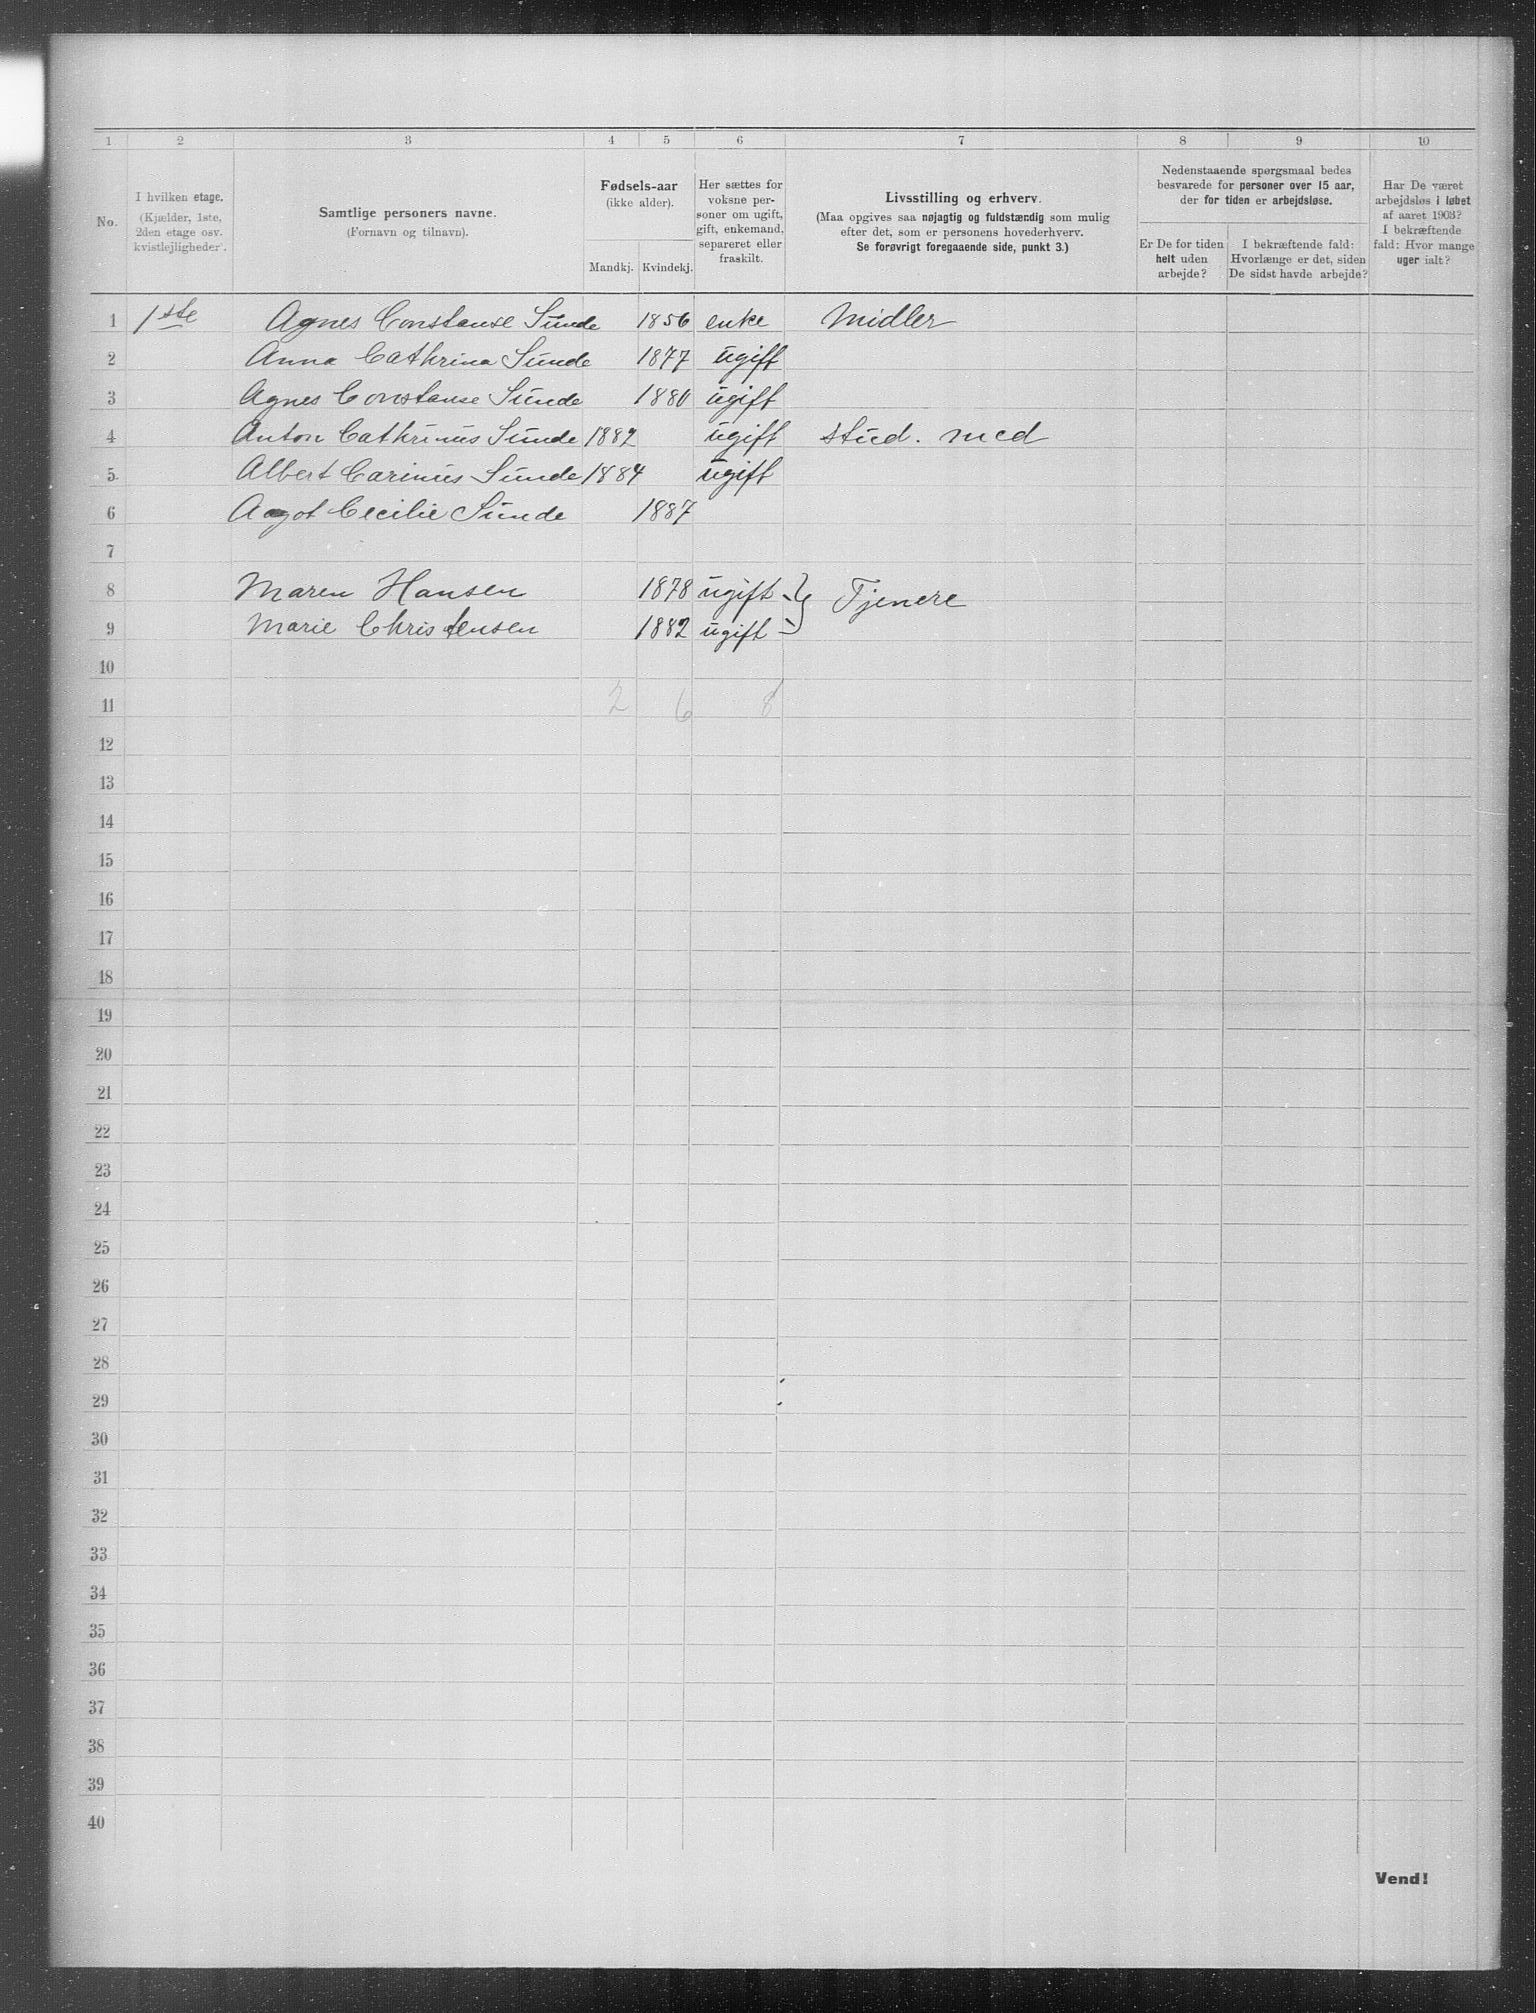 1 2 3 4 5 6 7 8 9 10
No.
I hvilken etage.
(Kjælder, 1ste,
2den etage osv.
kvistlejligheder).
Samtlige personers navne.
(Fornavn og tilnavn).
Fødsels-aar
(ikke alder).
Mandkj. Kvindekj.
Her sættes for
voksne per-
soner om ugift,
gift, enkemand,
separeret eller
fraskilt.
Livsstilling og erhverv.
(Maa opgives saa nøjagtig og fuldstændig som mulig
efter det, som er personens hovederhverv.
Se forøvrigt foregaaende side, punkt 3.)
Nedenstaaende spørgsmaal bedes
besvarede for personer over 15 aar,
der for tiden er arbejdsløse.
Er De for tiden
helt uden
arbejde?
I bekræftende fald:
Hvorlænge er det, siden
De sidst havde arbejde?
Har De været
arbejdsløs i løbet
af aaret 1903?
I bekræftende
fald: Hvor mange
uger ialt?
1 1ste Agnes Constanse Sunde 1856 enke Midler
2 Anna Cathrina Sunde 1877 ugift
3 Agnes Constanse Sunde 1880 ugift
4 Anton Cathrinus Sunde 1882 ugift stud. med
5 Albert Carinus Sunde 1884 ugift
6 Aagot Cecilie Sunde 1887
7
8 Maren Hansen 1878 ugift } Tjenere
9 Marie Christensen 1882 ugift
10
11 2 6 8
12
13
14
15
16
17
18
19
20
21
22
23
24
25
26
27
28
29
30
31
32
33
34
35
36
37
38
39
40
Vend!